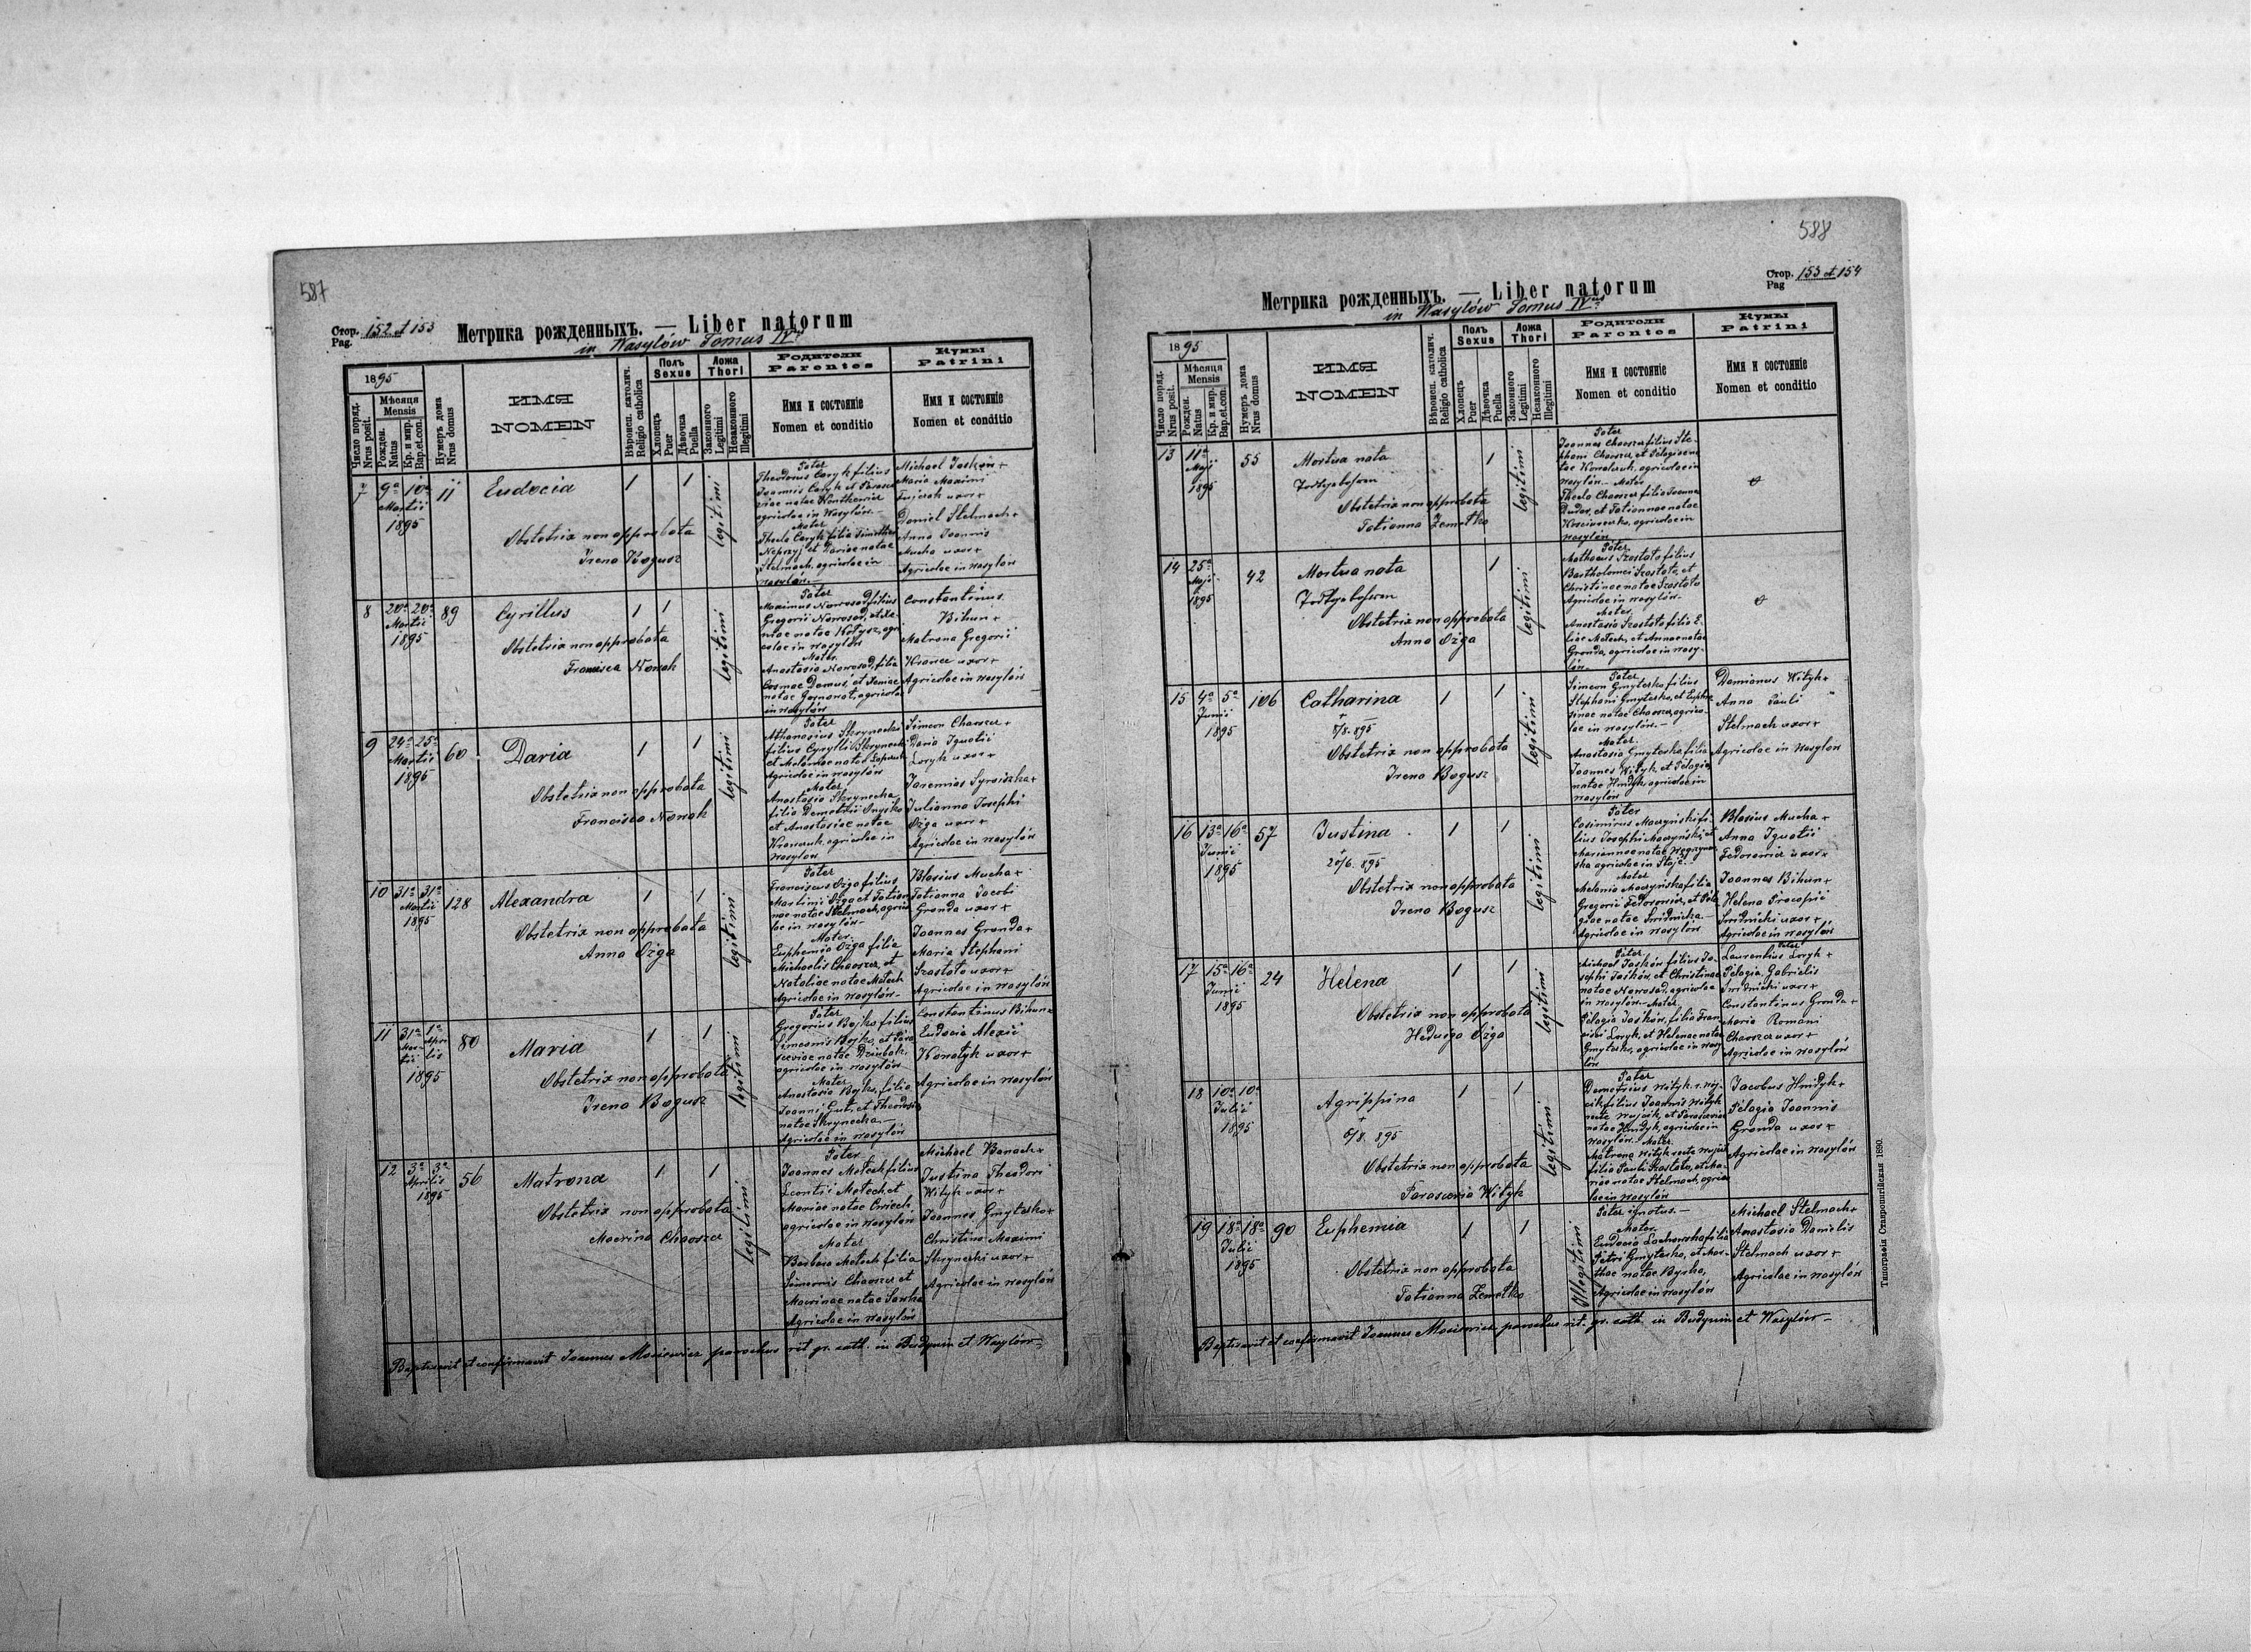 587
Стор. 152 et 153
Pag.
Метрика рожденныхъ. — Liber natorum
in Wasylów Tomus IVus
1895
Число поряд.
Nrus posit.
Мѣсяця
Mensis
Рожден.
Natus
Кр. и мир.
Bap.et.con.
Нумеръ дома
Nrus domus
ИМЯ
NOMEN
Вѣроисп. католич.
Religio catholica
Полъ
Sexus
Хлопецъ
Puer
Дѣвочка
Puella
Ложа
Thori
Законного
Legitimi
Незаконного
Illegitimi
Родители
Parentes
Имя и состояніе
Nomen et conditio
Кумы
Patrini
Имя и состояніе
Nomen et conditio
7 9a 10a 11
Martii
1895
Eudocia
1 1
legitimi
Obstetrix non approbata
Irena Bogusz
Pater
Theodorus Caryk filius
Joannis Caryk et
agricolae in Wasylów.
Mater
Thecla Caryk filia
et Dariae natae
Stelmach, agricolae in
Wasylów.
Michael Jasków +
Maria Maximi
uxor +
Daniel Stelmach +
Anna Joannis
Mucha uxor +
Agricolae in Wasylów
8 20a 20a 89
Martii
1895
Cyrillus
1 1
legitimi
Obstetrix non approbata
Francisca Nowak
Pater
Maximus Nowosad filius
Gregorii Nowosad, et
colae in Wasylów
Mater
Anastasia Nowosad, filia
Cosmae Demus, et
agricolae
in Wasylów
Constantinus
Bihun +
Matrona Gregorii
uxor +
Agricolae in Wasylów
9 24a 25a 60
Martii
1895
Daria
1 1
legitimi
Obstetrix non approbata
Francisca Nowak
Pater
Athanasius Skrynecki
filius Cyrylli Skrynecki
Agricolae in Wasylów
Mater
Anastasia Skrynecka
filia Demetrii
et Anastasiae natae
agricolae in
Wasylów
Simeon Chaoszcz +
Daria Ignatii
Loryk uxor +
Jaremias Syroiszka +
Julianna Josephi
Ożga uxor +
Agricolae in Wasylów
10 31a 31a 128
Martii
1895
Alexandra
1 1
legitimi
Obstetrix non approbata
Anna Ożga
Pater
Franciscus Ożga filius
Martini Ożga et Tatian-
nae natae Stelmach, agrico-
lae in Wasylów.
Mater
Euphemia Ożga filia
Michaelis Chaoszcz, et
Nataliae natae Motech
Agricolae in Wasylów
Blasius Mucha +
Tatianna Jacobi
Gronda uxor +
Joannes Gronda +
Maria Stephani
Szostata uxor +
Agricolae in Wasylów
11 31a 1a 80
Mar- Apri-
tii lis
1895
Maria
1 1
legitimi
Obstetrix non approbata
Irena Bogusz
Pater
Gregorius Bojko filius
Simeonis Bojko, et Para-
sceviae natae Dziubak,
agricolae in Wasylów
Mater
Anastasia Bojko, filia
Joanni Gut, et Theodosiae
natae Skrynecka
Agricolae in Wasylów
Constantinus Bihun +
Eudocia Alexii
Kowalyk uxor +
Agricolae in Wasylów
12 3a 3a 56
Aprilis
1895
Matrona
1 1
legitimi
Obstetrix non approbata
Macrina Chaoszcz
Pater
Joannes Motech filius
Leontii Motech et
Mariae natae
agricolae in Wasylów
Mater
Barbara Motech filia
Simeonis Chaoszcz et
Macrinae natae
Agricolae in Wasylów
Michael Banach +
Justina Theodori
Wityk uxor +
Joannes Gmyterko +
Christina Maximi
Skrynecki uxor +
Agricolae in Wasylów
Baptisavit et confirmavit Joannes Mosiewicz parochus rit. gr. cath. in Budynin et Wasylów
588
Стор. 153 et 154
Pag
Метрика рожденныхъ. — Liber natorum
in Wasylów Tomus IVus
1895
Число поряд.
Nrus posit.
Мѣсяця
Mensis
Рожден.
Natus
Кр. и мир.
Bap.et.con.
Нумеръ дома
Nrus domus
ИМЯ
NOMEN
Вѣроисп. католич.
Religio catholica
Полъ
Sexus
Хлопецъ
Puer
Дѣвочка
Puella
Ложа
Thori
Законного
Legitimi
Незаконного
Illegitimi
Родители
Parentes
Имя и состояніе
Nomen et conditio
Кумы
Patrini
Имя и состояніе
Nomen et conditio
13 11a 55
Maji
1895
Mortua nata
1
legitimi
Obstetrix non approbata
Tatianna Zemetko
Pater
Joannes Chaoszcz filius Ste-
phani Chaoszcz, et Pelagiae na-
tae Kowalczuk, agricolae in
Wasylów.- Mater
Thecla Chaoszcz filia Joannis
Dudar, et Tatiannae natae
agricolae in
Wasylów
14 25a 42
Maji
1895
Mortua nata
1
legitimi
Obstetrix non approbata
Anna Ożga
Pater
Mathaeus Szostata filius
Bartholomei Szostata, et
Christinae natae Szostata
Agricolae in Wasylów.
Mater
Anastasia Szostata filia E-
liae Motech, et Annae natae
Gronda, agricolae in Wasy-
lów.
15 4a 5a 106
Junii
1895
Catharina
+
5/8. 895
1 1
legitimi
Obstetrix non approbata
Irena Bogusz
Pater
Simeon Gmyterko filius
Stephani Gmyterko, et Euphro-
sinae natae Chaoszcz, agrico-
lae in Wasylów.
Mater
Anastasia Gmyterko filia
Joannes Wityk et Pelagia
natae Hmidyk, agricolae in
Wasylów
Damianus Wityk +
Anna Pauli
Stelmach uxor +
Agricolae in Wasylów
16 13a 16a 57
Junii
1895
Justina
+
20/6. 895
1 1
legitimi
Obstetrix non approbata
Irena Bogusz
Pater
Casimirus Moczyński fi-
lius Josephi Moczyński, et
Mariannae natae
agricolae in Staje.
Mater
Melania Moczyńska filia
Gregorii Fedorowicz, et Pela-
giae natae Snidnicka.
Agricolae in Wasylów
Blasius Mucha +
Anna Ignatii
Fedorowicz uxor +
Joannes Bihun +
Helena Procopii
Snidnicki uxor +
Agricolae in Wasylów
17 15a 16a 24
Junii
1895
Helena
1 1
legitimi
Obstetrix non approbata
Hedwiga Ożga
Pater
Michael Jasków filius Jo-
sephi Jasków, et Christinae
natae Nowosad, agricolae
in Wasylów.- Mater
Pelagia Jasków, filia
Loryk, et Helenae natae
Gmyterko, agricolae in Wasy-
lów
Laurentius Loryk +
Pelagia Gabrielis
Snidnicki uxor +
Constantinus Gronda +
Maria Romani
Chaoszcz uxor +
Agricolae in Wasylów
18 10a 10a
Julii
1895
Agrippina
+
6/8. 895
1 1
legitimi
Obstetrix non approbata
Parascevia Wityk
Pater
Demetrius Wityk r. Woj-
cik filius Joannis Wityk
recte Wojcik, et Parasceviae
natae Hmidyk, agricolae in
Wasylów. Mater
Matrona Wityk recte Wojcik
filia Pauli Szostata, et Ma-
riae natae Stelmach, agrico-
lae in Wasylów
Jacobus Hmidyk +
Pelagia Joannis
Gronda uxor +
Agricolae in Wasylów
19 18a 18a 90
Julii
1895
Euphemia
1 1
Illegitimi
Obstetrix non approbata
Tatianna Zemetko
Pater ignotus.
Mater
Eudocia Lachowska filia
Petri Gmyterko, et Mar-
thae natae Byrka,
Agricolae in Wasylów
Michael Stelmach +
Anastasia Danielis
Stelmach uxor +
Agricolae in Wasylów
Baptisavit et confirmavit Joannes Mosiewicz parochus rit. gr. cath. in Budynin et Wasylów
Типографія Ставропигійская 1890.